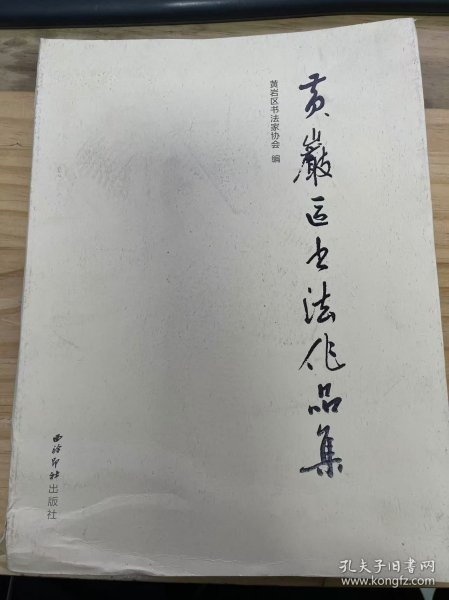 黄巖区书法作品集
黄岩区书法家协会 编
西泠印社出版社
孔夫子旧书网
www.kongfz.com